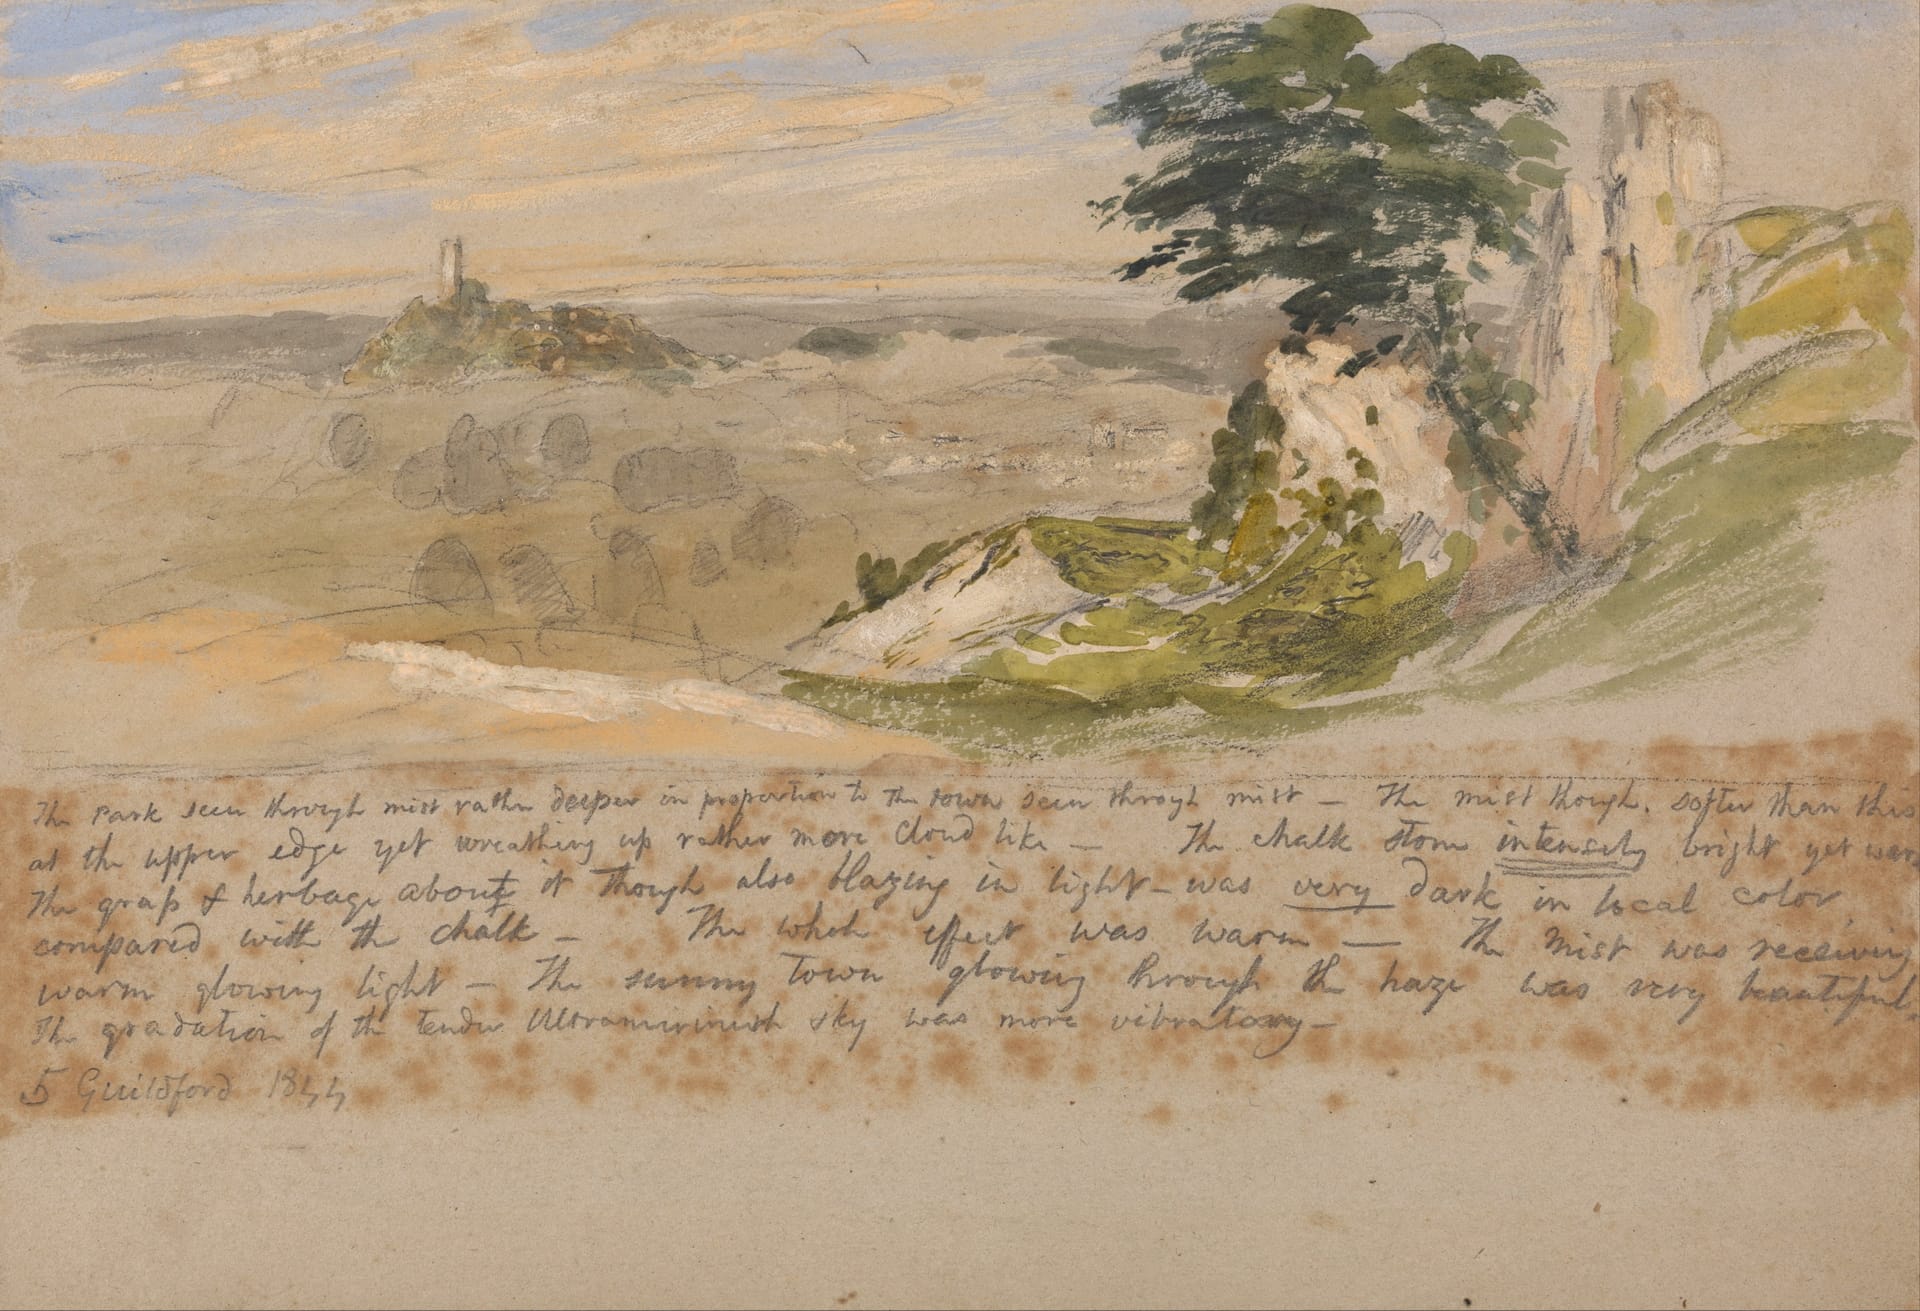 The Park seen through mist rather deeper in proportion to the town seen through mist — The mist though. softer than this
at the upper edge yet wreathing up rather more cloud like — The chalk stone intensely bright yet warm
The grass & herbage about it though also blazing in light — was very dark in local color
compared with the chalk — The whole effect was warm — The Mist was receiving
warm glowing light — The sunny town glowing through the haze was very beautiful.
The gradation of the tender Ultramarinish sky was more vibratory —
5 Guildford 1844